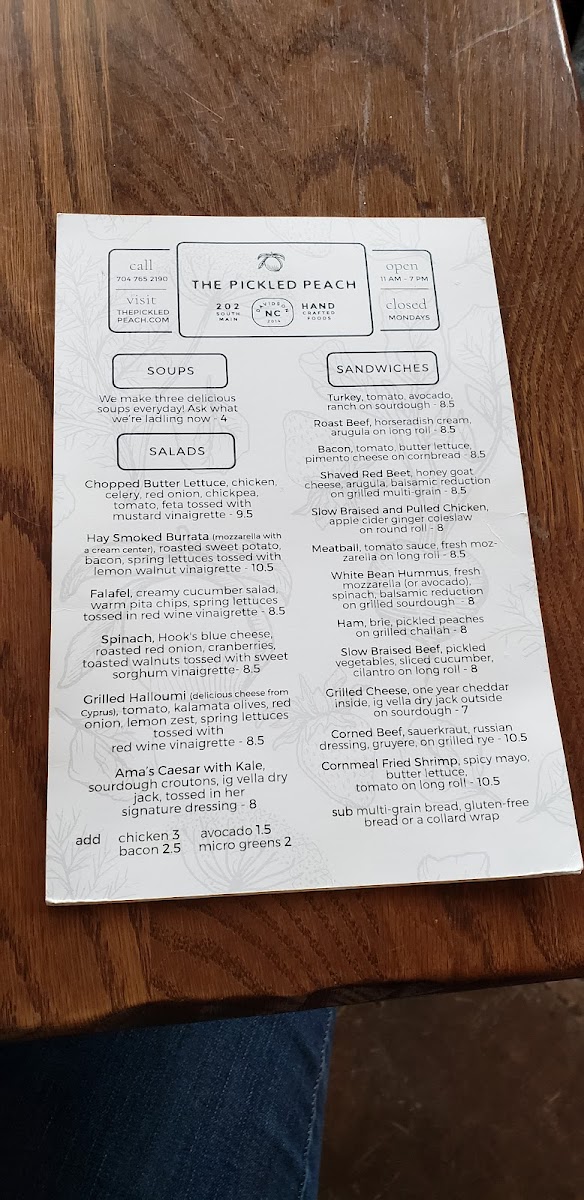 call
704 765 2190
visit
THEPICKLED
PEACH.COM
THE PICKLED PEACH
202
SOUTH
MAIN
DAVIDSON
NC
2014
HAND
CRAFTED
FOODS
open
11 AM - 7 PM
closed
MONDAYS
SOUPS
We make three delicious
soups everyday! Ask what
we're ladling now - 4
SALADS
Chopped Butter Lettuce, chicken,
celery, red onion, chickpea,
tomato, feta tossed with
mustard vinaigrette - 9.5
Hay Smoked Burrata (mozzarella with
a cream center), roasted sweet potato,
bacon, spring lettuces tossed with
lemon walnut vinaigrette - 10.5
Falafel, creamy cucumber salad,
warm pita chips, spring lettuces
tossed in red wine vinaigrette - 8.5
Spinach, Hook's blue cheese,
roasted red onion, cranberries,
toasted walnuts tossed with sweet
sorghum vinaigrette- 8.5
Grilled Halloumi (delicious cheese from
Cyprus), tomato, kalamata olives, red
onion, lemon zest, spring lettuces
tossed with
red wine vinaigrette - 8.5
Ama's Caesar with Kale,
sourdough croutons, ig vella dry
jack, tossed in her
signature dressing - 8
add chicken 3 avocado 1.5
bacon 2.5 micro greens 2
SANDWICHES
Turkey, tomato, avocado,
ranch on sourdough - 8.5
Roast Beef, horseradish cream,
arugula on long roll - 8.5
Bacon, tomato, butter lettuce,
pimento cheese on cornbread - 8.5
Shaved Red Beet, honey goat
cheese, arugula, balsamic reduction
on grilled multi-grain - 8.5
Slow Braised and Pulled Chicken,
apple cider ginger coleslaw
on round roll - 8
Meatball, tomato sauce, fresh moz-
zarella on long roll - 8.5
White Bean Hummus, fresh
mozzarella (or avocado),
spinach, balsamic reduction
on grilled sourdough - 8
Ham, brie, pickled peaches
on grilled challah - 8
Slow Braised Beef, pickled
vegetables, sliced cucumber,
cilantro on long roll - 8
Grilled Cheese, one year cheddar
inside, ig vella dry jack outside
on sourdough - 7
Corned Beef, sauerkraut, russian
dressing, gruyere, on grilled rye - 10.5
Cornmeal Fried Shrimp, spicy mayo,
butter lettuce,
tomato on long roll - 10.5
sub multi-grain bread, gluten-free
bread or a collard wrap